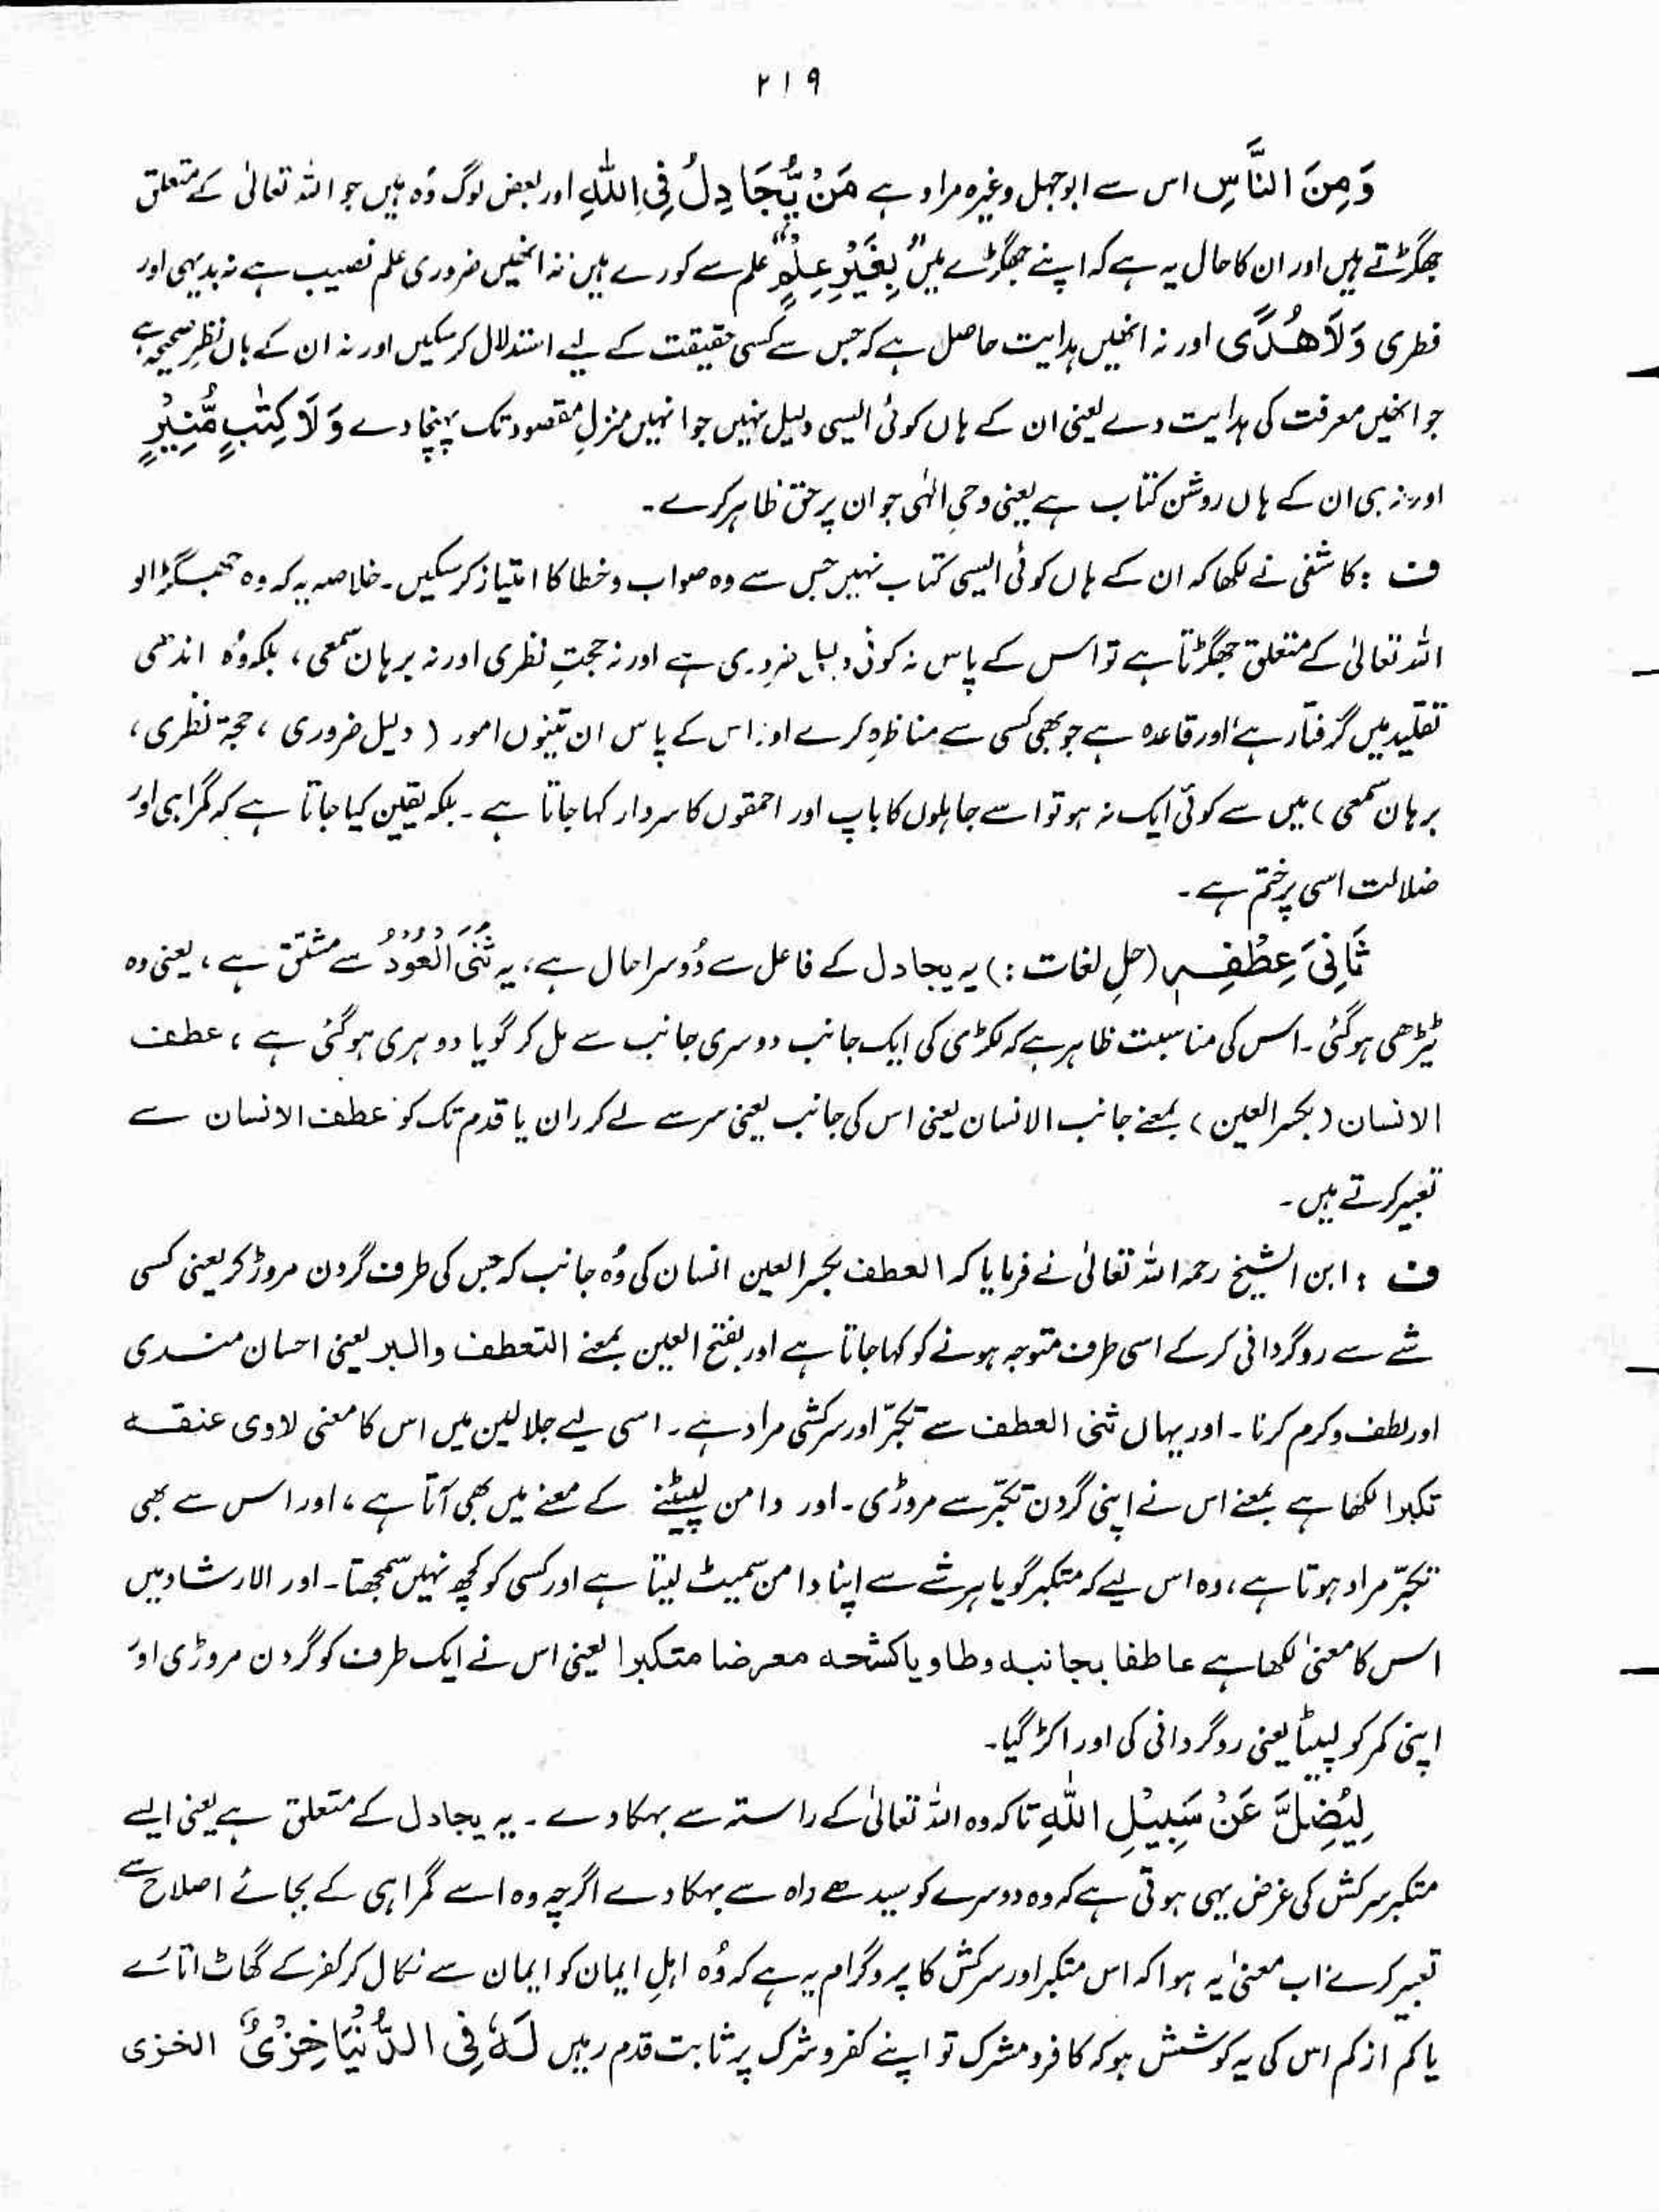 ۲۱۹
وَمِنَ النَّاسِ اس سے ابوجہل وغیرہ مراد ہے مَنْ يُّجَادِلُ فِی اللّٰهِ اور بعض لوگ وُہ ہیں جو اللہ تعالیٰ کے متعلق
جھگڑتے ہیں اور ان کا حال یہ ہے کہ اپنے جھگڑے میں "بِغَيْرِ عِلْمٍ" علم سے کورے ہیں نہ انھیں ضروری علم نصیب ہے نہ بدیہی اور
فطری وَلَا هُدًى اور نہ انھیں ہدایت حاصل ہے کہ جس سے کسی حقیقت کے لیے استدلال کرسکیں اور نہ ان کے ہاں نظرِ صحیحہ ہے
جو انھیں معرفت کی ہدایت دے یعنی ان کے ہاں کوئی ایسی دلیل نہیں جو انہیں منزلِ مقصود تک پہنچا دے وَلَا كِتٰبٍ مُّنِيْرٍ
اور نہ ہی ان کے ہاں روشن کتاب ہے یعنی وحیِ الٰہی جو ان پر حق ظاہر کرے۔
ف : کاشفی نے لکھا کہ ان کے ہاں کوئی ایسی کتاب نہیں جس سے وہ صواب و خطا کا امتیاز کرسکیں۔ خلاصہ یہ کہ وہ جھگڑالو
اللہ تعالیٰ کے متعلق جھگڑتا ہے تو اس کے پاس نہ کوئی دلیل ضروری ہے اور نہ حجتِ نظری اور نہ برہان سمعی، بلکہ وُہ اندھی
تقلید میں گرفتار ہے اور قاعدہ ہے جو بھی کسی سے مناظرہ کرے اور اس کے پاس ان تینوں امور (دلیل ضروری، حجۃ نظری،
برہان سمعی) میں سے کوئی ایک نہ ہو تو اسے جاہلوں کا باپ اور احمقوں کا سردار کہا جاتا ہے۔ بلکہ یقین کیا جاتا ہے کہ گمراہی اور
ضلالت اسی پر ختم ہے۔
ثَانِیَ عِطْفِهٖ (حلِ لغات :) یہ یجادل کے فاعل سے دُوسرا حال ہے، یہ ثَنَی الْعُوْدُ سے مشتق ہے، یعنی وہ
ٹیڑھی ہوگئی۔ اس کی مناسبت ظاہر ہے کہ لکڑی کی ایک جانب دوسری جانب سے مل کر گویا دوہری ہوگئی ہے، عطف
الانسان (بکسر العین) بمعنے جانب الانسان یعنی اس کی جانب یعنی سر سے لے کر ران یا قدم تک کو عطف الانسان سے
تعبیر کرتے ہیں۔
ف : ابن الشیخ رحمہ اللہ تعالیٰ نے فرمایا کہ العطف بکسر العین انسان کی وُہ جانب کہ جس کی طرف گردن مروڑ کر یعنی کسی
شے سے روگردانی کرکے اسی طرف متوجہ ہونے کو کہا جاتا ہے اور بفتح العین بمعنے التعطف والبر یعنی احسان مندی
اور لطف و کرم کرنا۔ اور یہاں ثنی العطف سے تکبّر اور سرکشی مراد ہے۔ اسی لیے جلالین میں اس کا معنی لاوی عنقه
تکبرا لکھا ہے بمعنے اس نے اپنی گردن تکبّر سے مروڑی۔ اور دامن لپیٹنے کے معنے میں بھی آتا ہے، اور اس سے بھی
تکبّر مراد ہوتا ہے، وہ اس لیے کہ متکبر گویا ہر شے سے اپنا دامن سمیٹ لیتا ہے اور کسی کو کچھ نہیں سمجھتا۔ اور الارشاد میں
اس کا معنیٰ لکھا ہے عاطفا بجانبه وطاويا كشحه معرضا متكبرا یعنی اس نے ایک طرف کو گردن مروڑی اور
اپنی کمر کو لپیٹا یعنی روگردانی کی اور اکڑ گیا۔
لِيُضِلَّ عَنْ سَبِيْلِ اللّٰهِ تاکہ وہ اللہ تعالیٰ کے راستہ سے بہکا دے۔ یہ یجادل کے متعلق ہے یعنی ایسے
متکبر سرکش کی غرض یہی ہوتی ہے کہ وہ دوسرے کو سیدھے راہ سے بہکا دے اگرچہ وہ اسے گمراہی کے بجائے اصلاح سے
تعبیر کرے اب معنیٰ یہ ہوا کہ اس متکبر اور سرکش کا پروگرام یہ ہے کہ وُہ اہلِ ایمان کو ایمان سے نکال کر کفر کے گھاٹ اتارے
یا کم از کم اس کی یہ کوشش ہو کہ کافر و مشرک تو اپنے کفر و شرک پر ثابت قدم رہیں لَهٗ فِی الدُّنْيَا خِزْیٌ الخزی